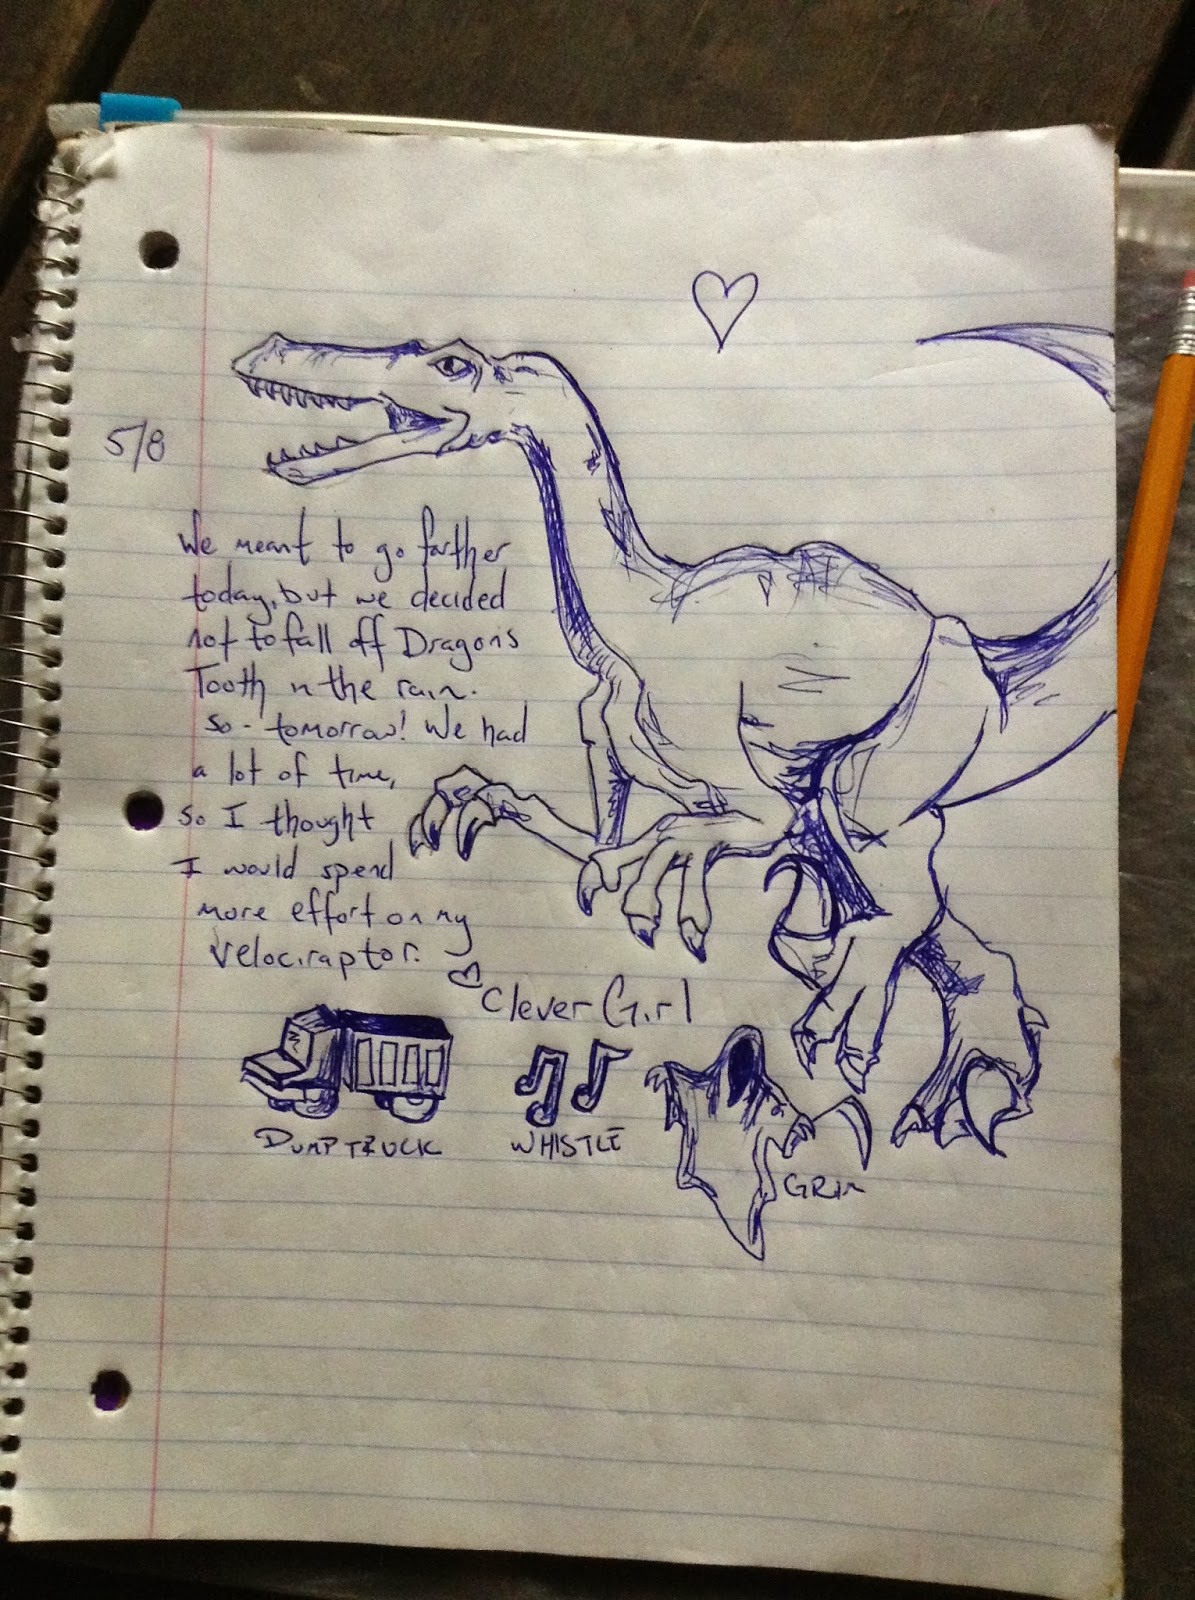 5/8
We meant to go farther
today, but we decided
not to fall off Dragons
Tooth in the rain.
So - tomorrow! We had
a lot of time,
so I thought
I would spend
more effort on my
velociraptor.
♡ Clever Girl
DUMPTRUCK
WHISTLE
GRIM